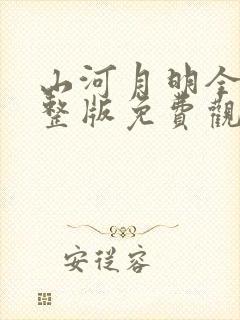 山河月明全
整版免費觀
安從容